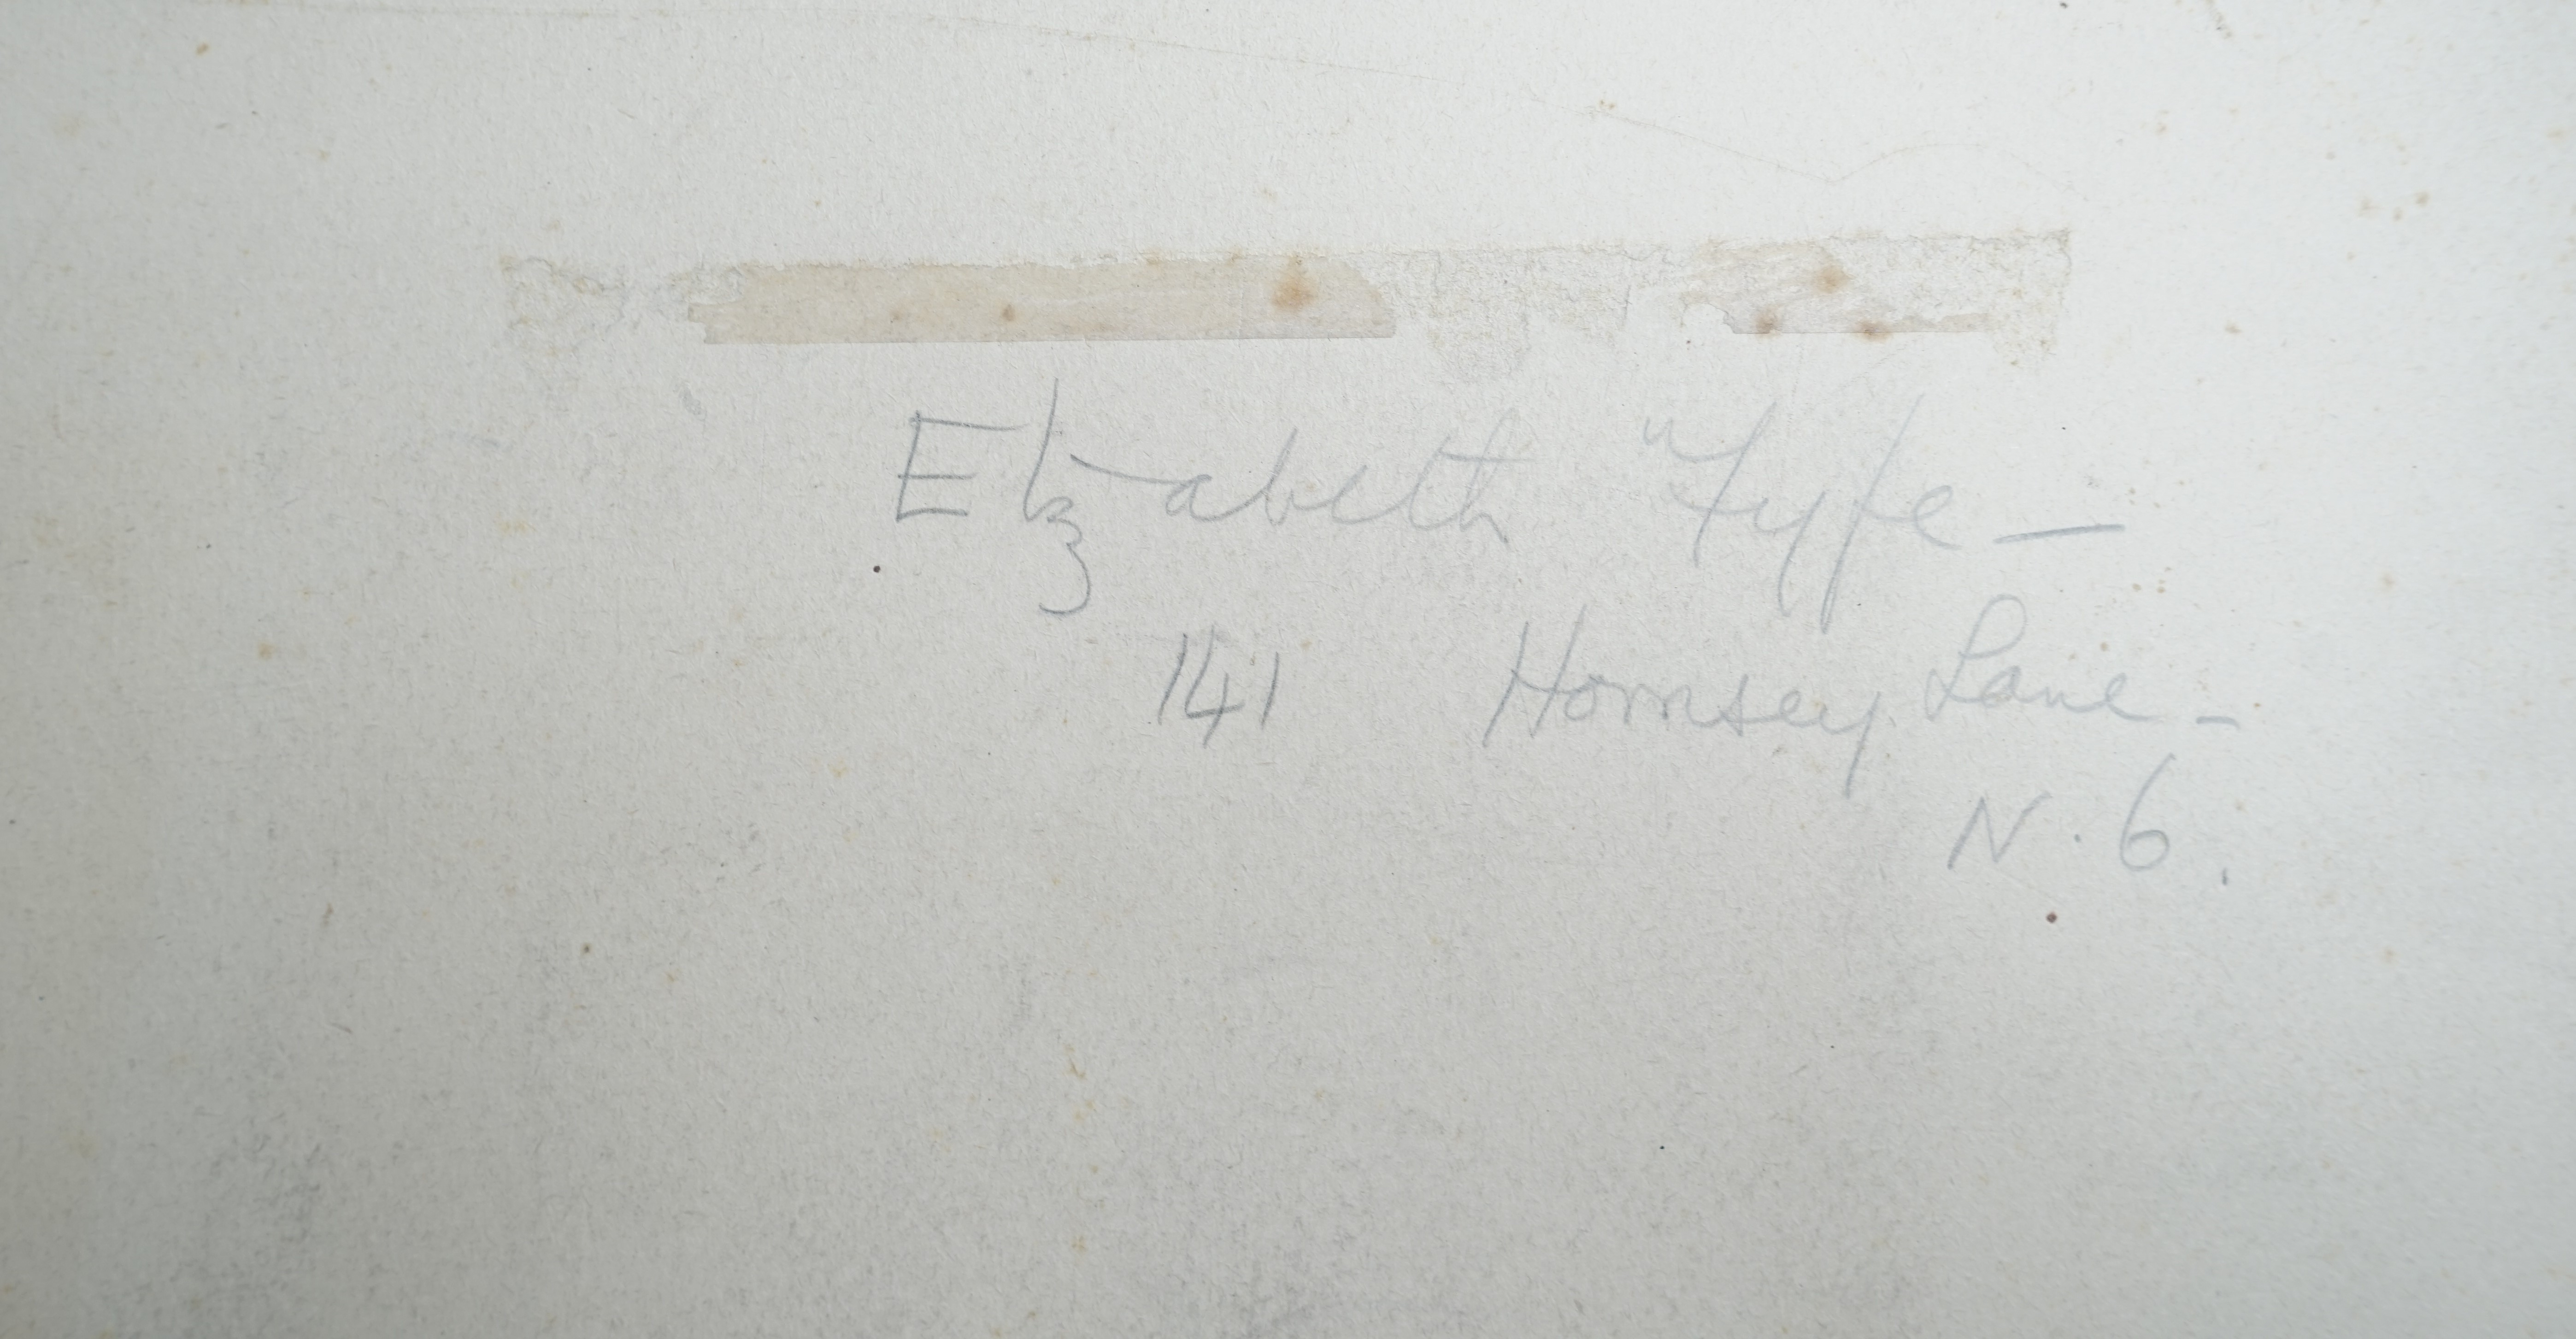 Elizabeth Fyfe —
141 Hornsey Lane -
N. 6.